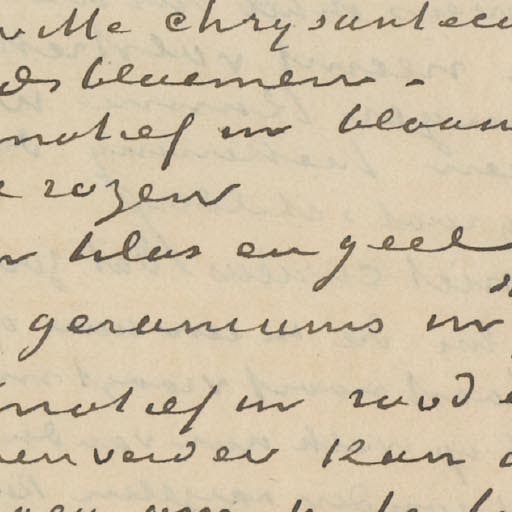 witte chrysante
ds bloemen.
motief in blauw
rozen
lilas en geel
geraniums in
motief in rood
verder kan